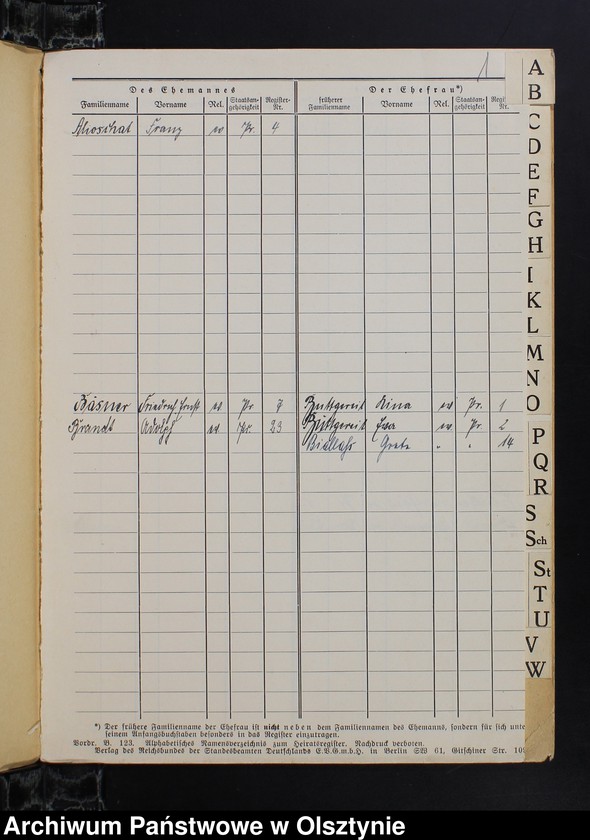 1
Des Ehemannes Der Ehefrau*)
Familienname Vorname Rel. Staatsan-gehörigkeit Register-Nr. früherer Familienname Vorname Rel. Staatsan-gehörigkeit Regi Nr.
Franz ev Pr. 4
Bäsner Friedrich Ernst ev Pr 9 Buttgereit Lina ev Pr. 1
Brandt Adolph ev Pr. 23 Buttgereit Eva ev Pr. 2
Grete " " 14
*) Der frühere Familienname der Ehefrau ist nicht neben dem Familiennamen des Ehemanns, sondern für sich unte
seinem Anfangsbuchstaben besonders in das Register einzutragen.
Vordr. B. 123. Alphabetisches Namensverzeichnis zum Heiratsregister. Nachdruck verboten.
Verlag des Reichsbundes der Standesbeamten Deutschlands E.V.G.m.b.H. in Berlin SW 61, Gitschiner Str. 109
A
B
C
D
E
F
G
H
I
K
L
M
N
O
P
Q
R
S
Sch
St
T
U
V
W
Archiwum Państwowe w Olsztynie